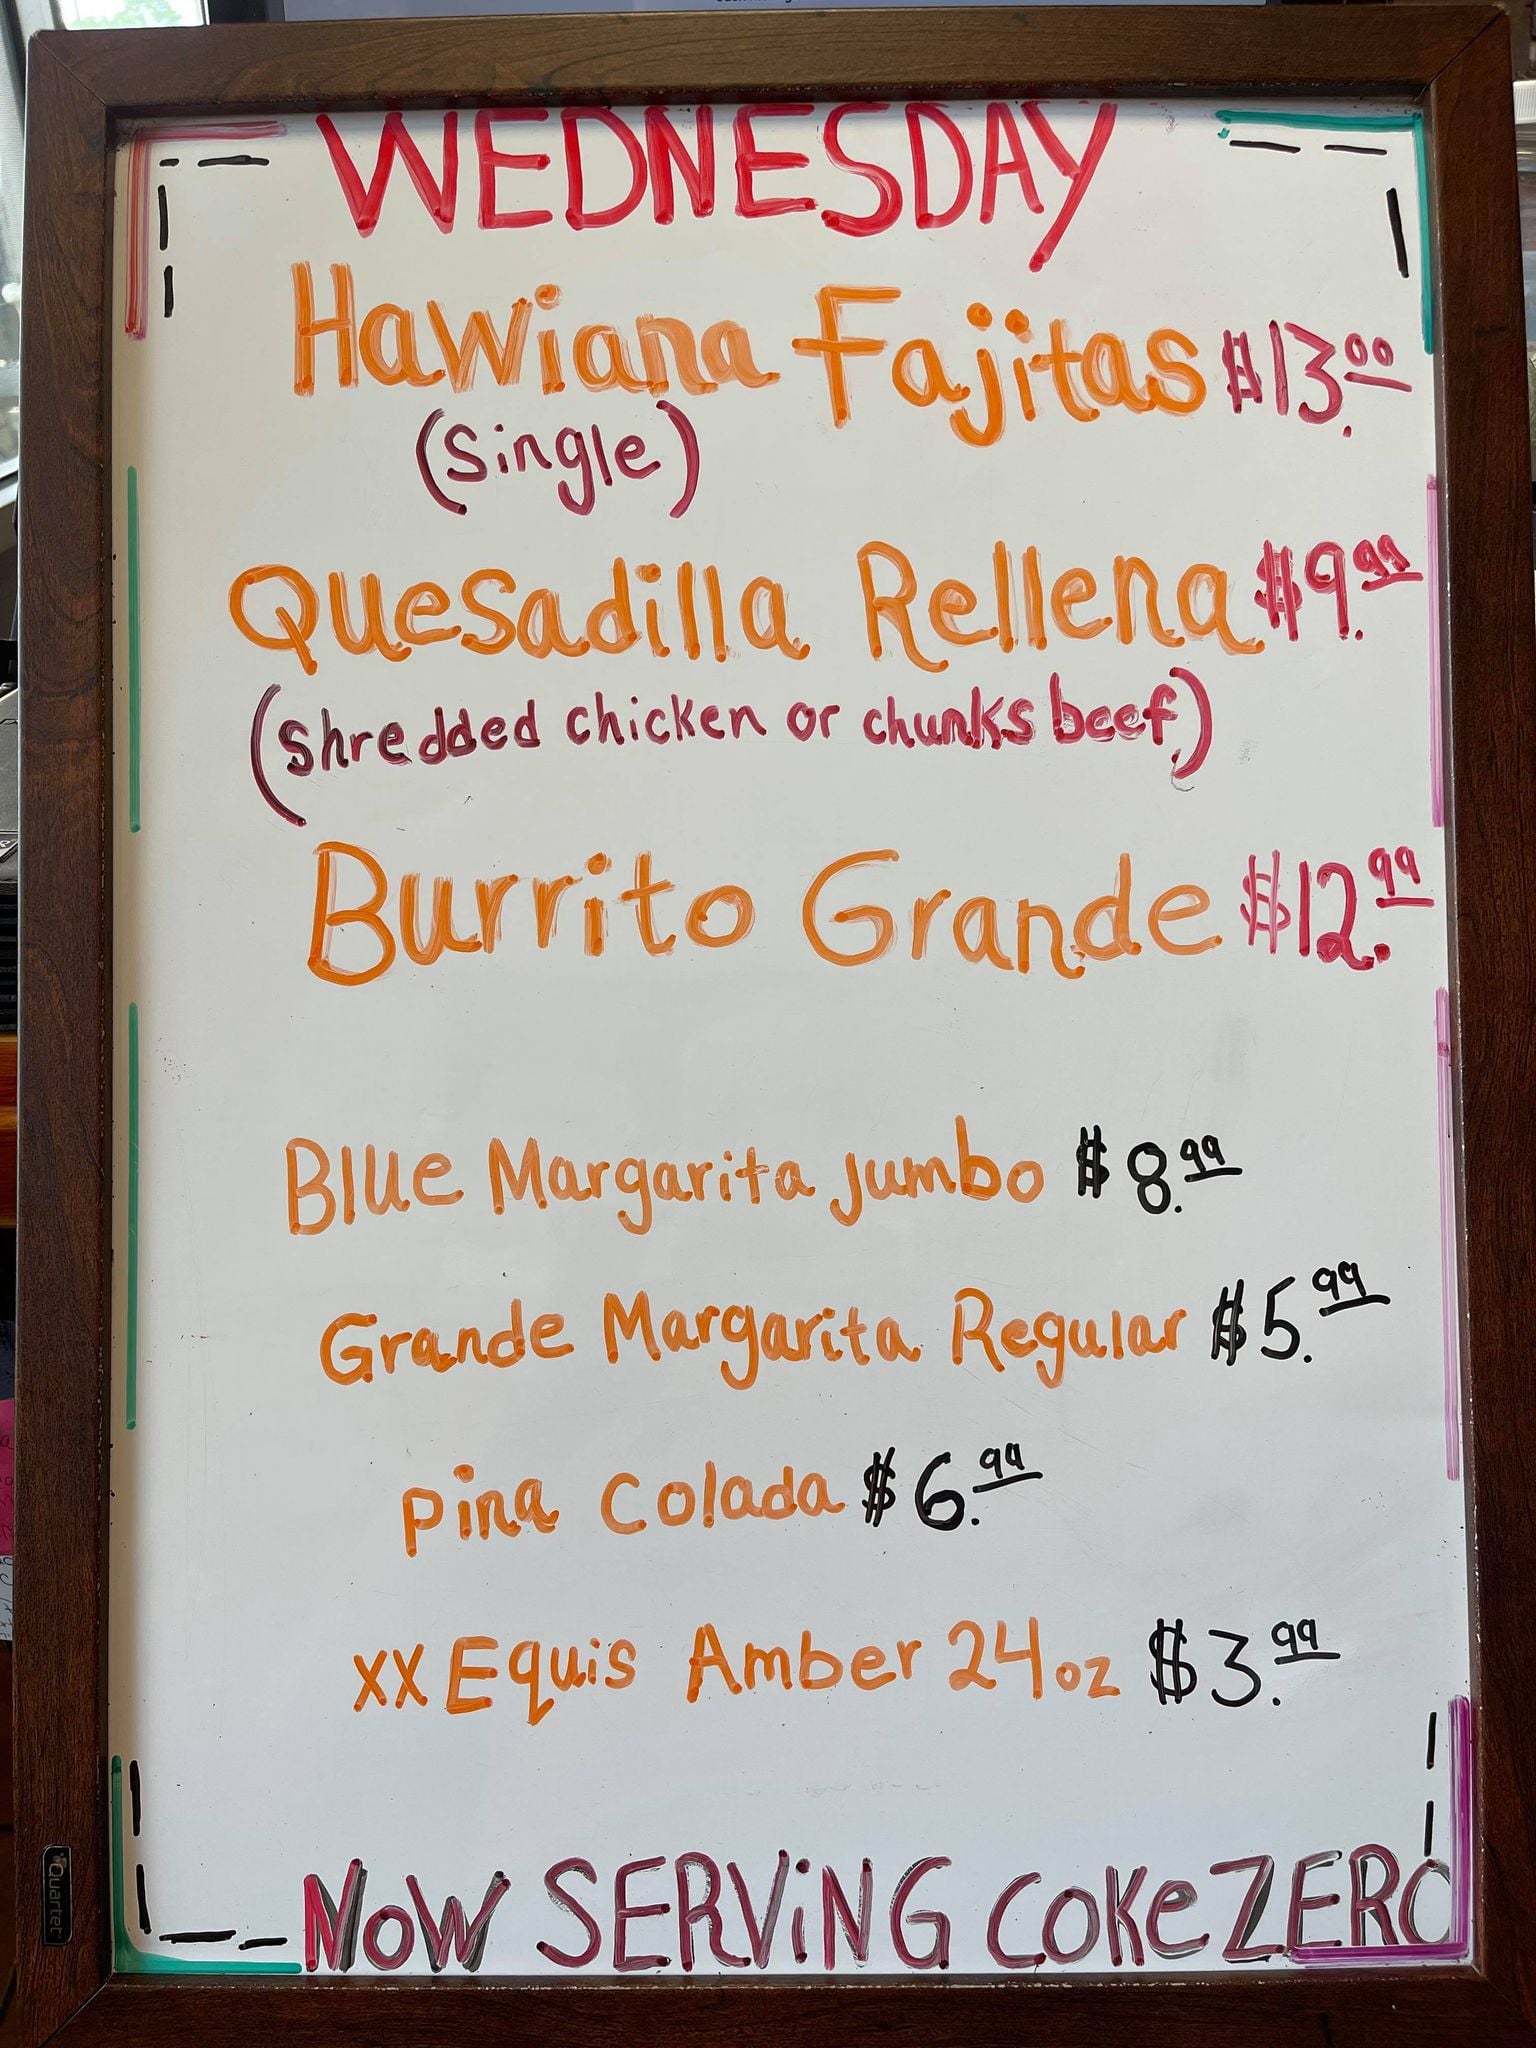 WEDNESDAY
Hawiana Fajitas $13.00
(single)
Quesadilla Rellena $9.99
(shredded chicken or chunks beef)
Burrito Grande $12.99
Blue Margarita jumbo $8.99
Grande Margarita Regular $5.99
Pina Colada $6.99
xx Equis Amber 24oz $3.99
NOW SERViNG COKE ZERO
Quartet